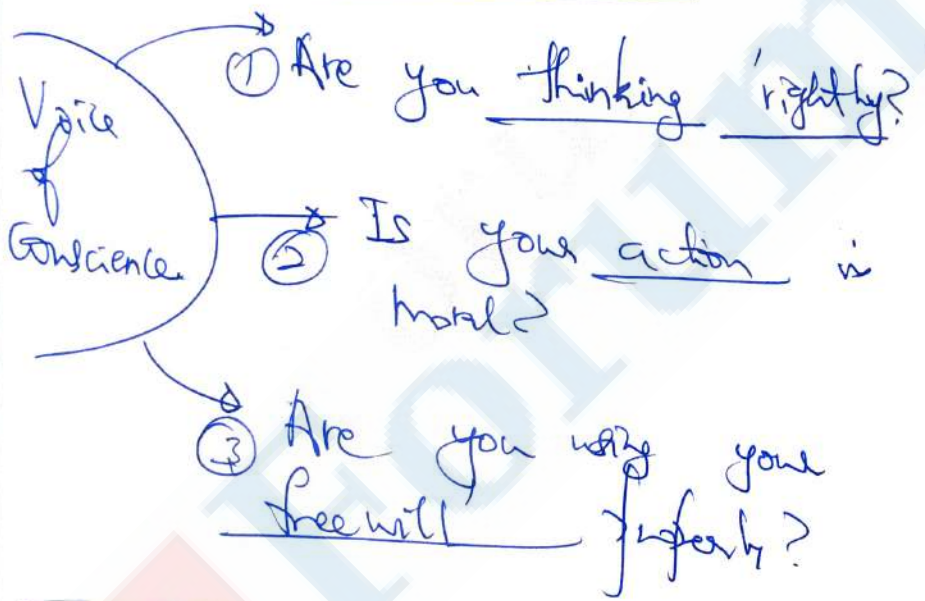 Voice
of
Conscience
① Are you thinking rightly?
② Is your action is
moral?
③ Are you using your
freewill properly?
Forum